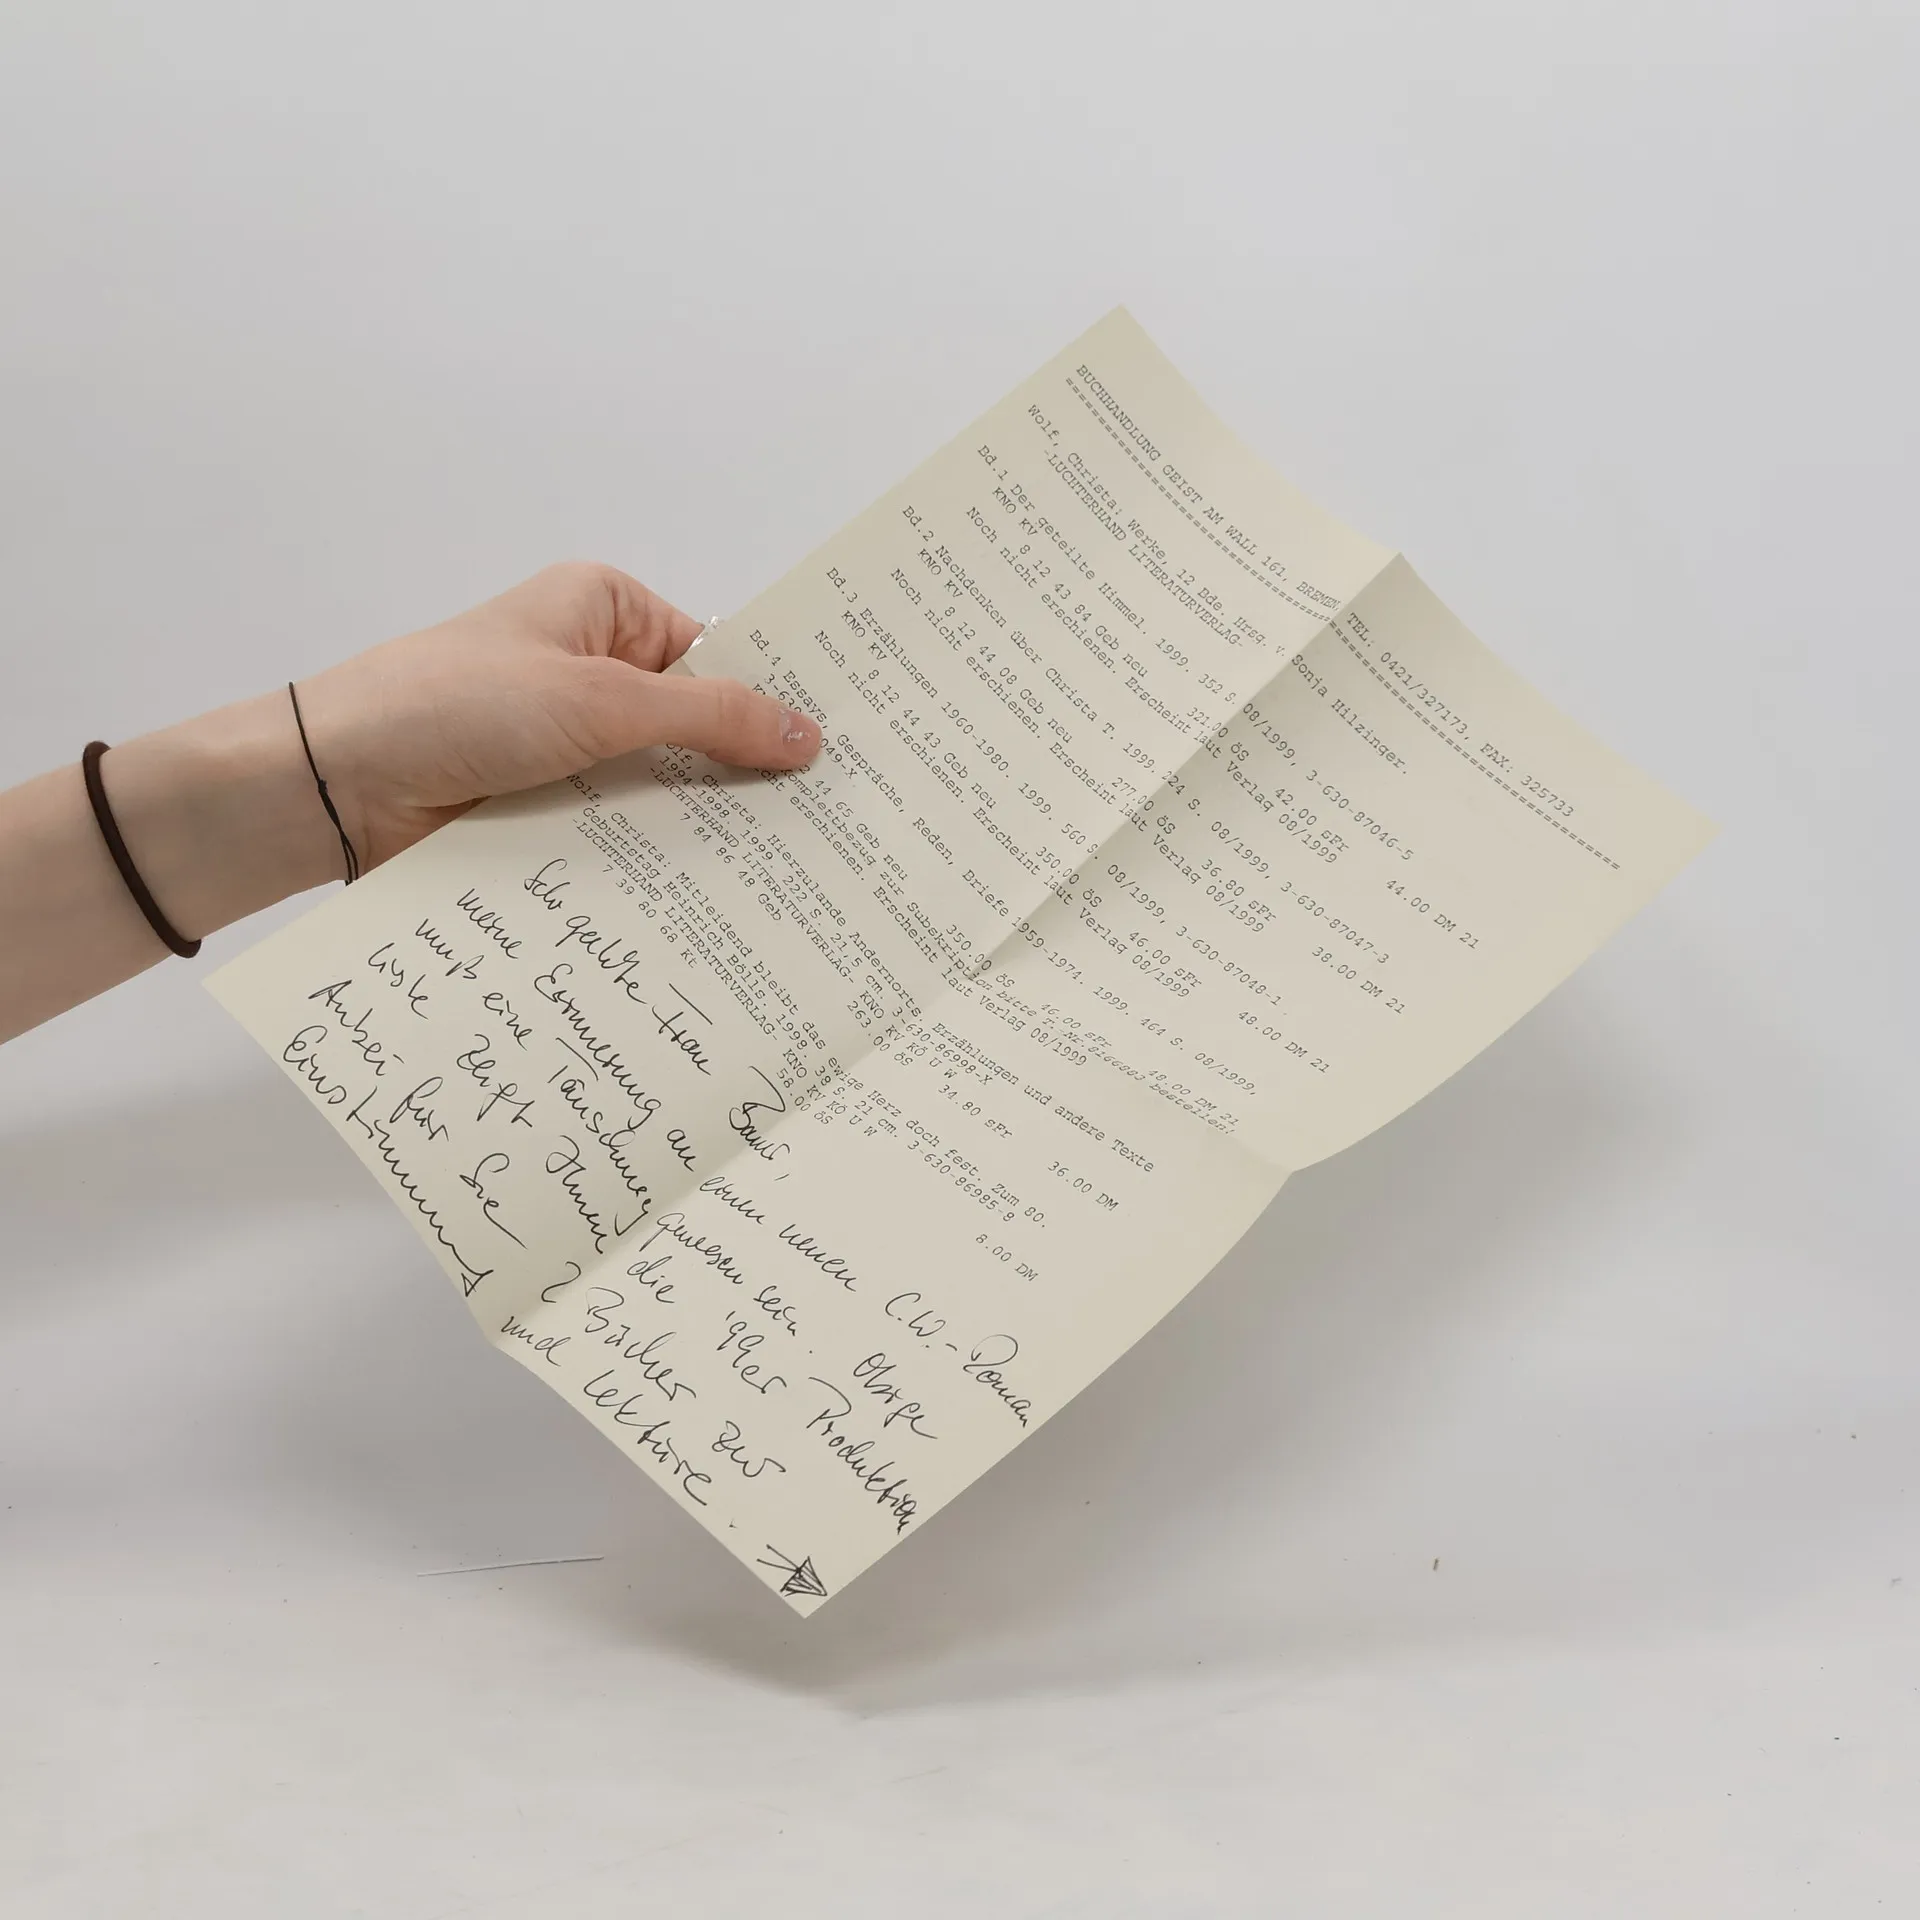 BUCHHANDLUNG GEIST AM WALL 161, BREMEN, TEL.: 0421/327173, FAX: 325733
Wolf, Christa: Werke, 12 Bde. Hrsg. v. Sonja Hilzinger.
-LUCHTERHAND LITERATURVERLAG-
Bd.1 Der geteilte Himmel. 1999. 352 S. 08/1999, 3-630-87046-5
KNO KV 8 12 43 84 Geb neu 321.00 öS 42.00 sFr 44.00 DM 21
Noch nicht erschienen. Erscheint laut Verlag 08/1999
Bd.2 Nachdenken über Christa T. 1999. 224 S. 08/1999, 3-630-87047-3
KNO KV 8 12 44 08 Geb neu 277.00 öS 36.80 sFr 38.00 DM 21
Noch nicht erschienen. Erscheint laut Verlag 08/1999
Bd.3 Erzählungen 1960-1980. 1999. 560 S. 08/1999, 3-630-87048-1
KNO KV 8 12 44 43 Geb neu 350.00 öS 46.00 sFr 48.00 DM 21
Noch nicht erschienen. Erscheint laut Verlag 08/1999
Bd.4 Essays, Gespräche, Reden, Briefe 1959-1974. 1999. 464 S. 08/1999,
049-X
44 65 Geb neu 350.00 öS 46.00 sFr 48.00 DM 21
Komplettbezug zur Subskription bitte T.-Nr. bestellen!
erschienen. Erscheint laut Verlag 08/1999
Christa: Hierzulande Andernorts. Erzählungen und andere Texte
1994-1998. 1999. 222 S. 21,5 cm. 3-630-86998-X
-LUCHTERHAND LITERATURVERLAG- KNO KV KÖ U W
7 84 86 48 Geb 263.00 öS 34.80 sFr 36.00 DM
Wolf, Christa: Mitleidend bleibt das ewige Herz doch fest. Zum 80.
Geburtstag Heinrich Bölls. 1998. 39 S. 21 cm. 3-630-86985-8
-LUCHTERHAND LITERATURVERLAG- KNO KV KÖ U W
7 39 80 68 Kt 58.00 öS 8.00 DM
Sehr geehrte Frau
meine Erinnerung an einen neuen C.W.-Roman
muß eine Täuschung gewesen sein. Obige
Liste zeigt Ihnen die '99er Produktion
Anbei für Sie 2 Bücher zur
Einstimmung und Lektüre.